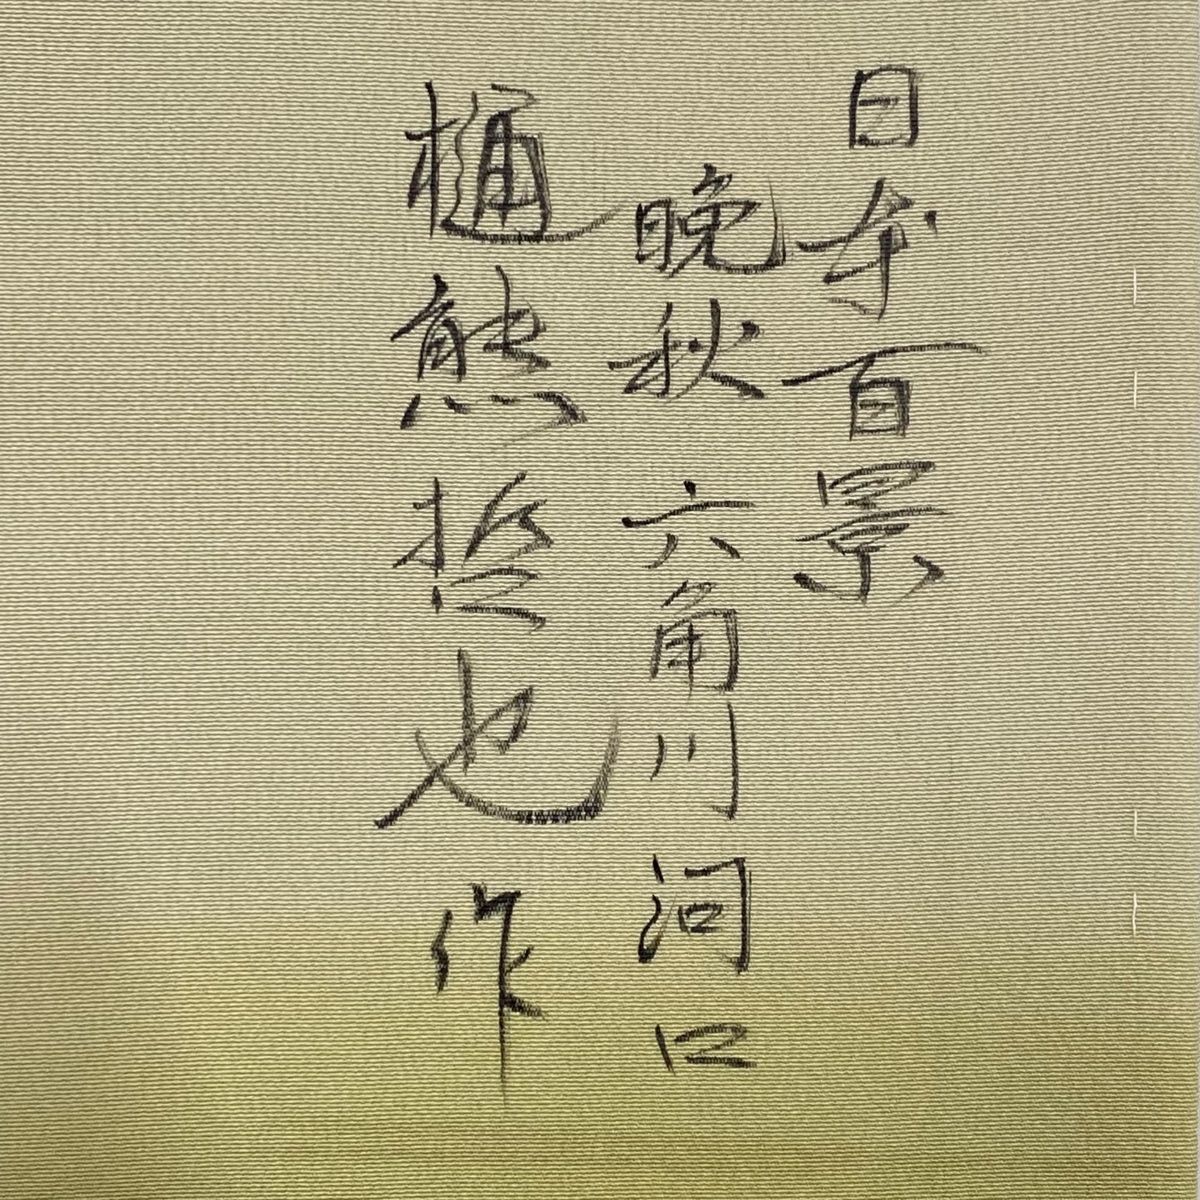 日本百景
晩秋 六角川河口
樋熊哲也 作